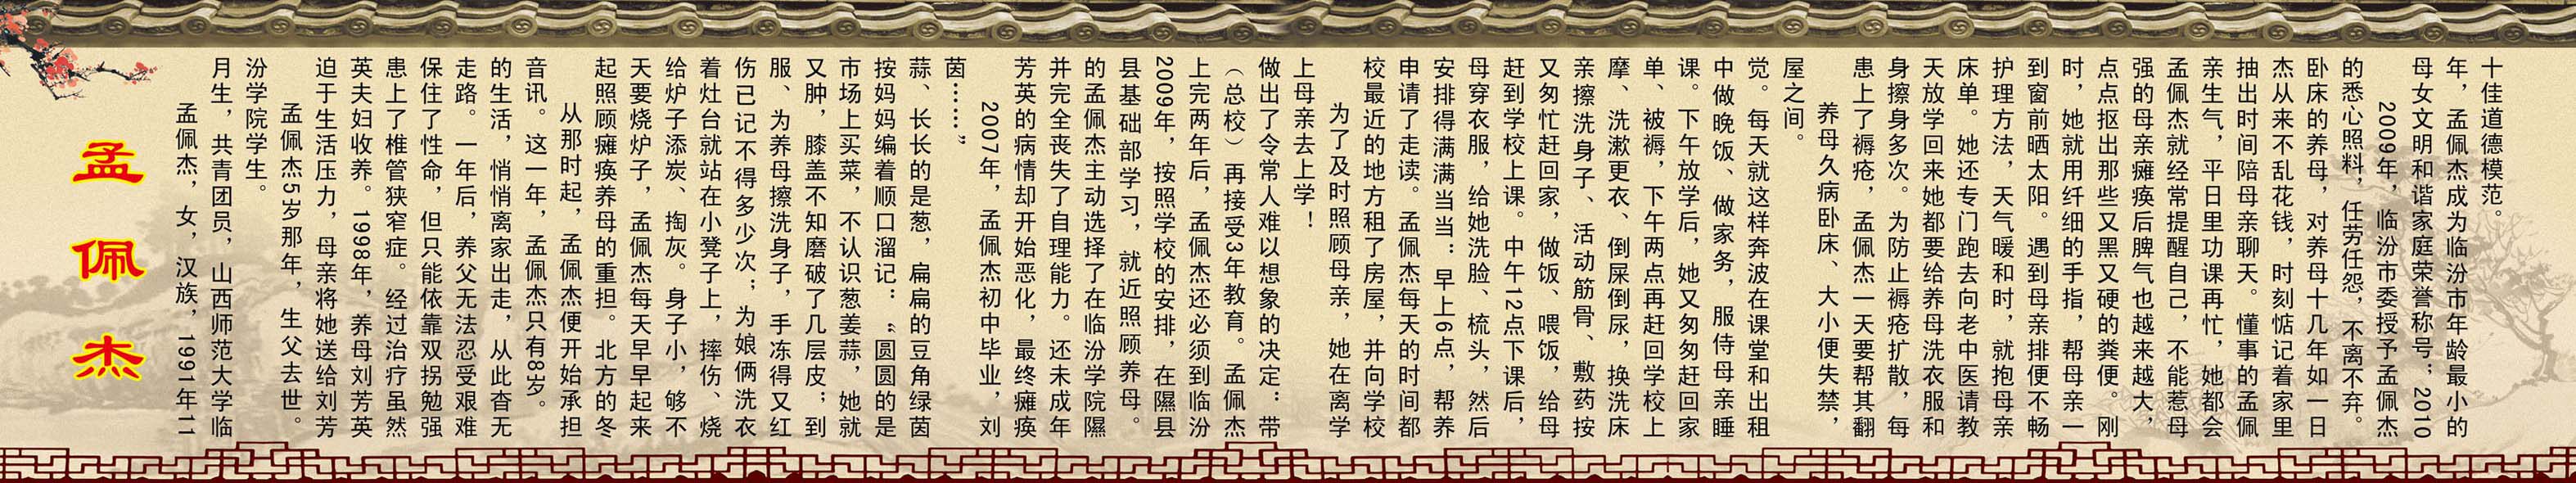 孟佩杰
孟佩杰，女，汉族，1991年11
月生，共青团员，山西师范大学临
汾学院学生。
孟佩杰5岁那年，生父去世。
迫于生活压力，母亲将她送给刘芳
英夫妇收养。1998年，养母刘芳英
患上了椎管狭窄症。经过治疗虽然
保住了性命，但只能依靠双拐勉强
走路。一年后，养父无法忍受艰难
的生活，悄悄离家出走，从此杳无
音讯。这一年，孟佩杰只有8岁。
从那时起，孟佩杰便开始承担
起照顾瘫痪养母的重担。北方的冬
天要烧炉子，孟佩杰每天早早起来
给炉子添炭、掏灰。身子小，够不
着灶台就站在小凳子上，摔伤、烧
伤已记不得多少次；为娘俩洗衣
服、为养母擦洗身子，手冻得又红
又肿，膝盖不知磨破了几层皮；到
市场上买菜，不认识葱姜蒜，她就
按妈妈编着顺口溜记：“圆圆的是
蒜、长长的是葱，扁扁的豆角绿茵
茵……”
2007年，孟佩杰初中毕业，刘
芳英的病情却开始恶化，最终瘫痪
并完全丧失了自理能力。还未成年
的孟佩杰主动选择了在临汾学院隰
县基础部学习，就近照顾养母。
2009年，按照学校的安排，在隰县
上完两年后，孟佩杰还必须到临汾
（总校）再接受3年教育。孟佩杰
做出了令常人难以想象的决定：带
上母亲去上学！
为了及时照顾母亲，她在离学
校最近的地方租了房屋，并向学校
申请了走读。孟佩杰每天的时间都
安排得满满当当：早上6点，帮养
母穿衣服，给她洗脸、梳头，然后
赶到学校上课。中午12点下课后，
又匆忙赶回家，做饭、喂饭，给母
亲擦洗身子、活动筋骨、敷药按
摩、洗漱更衣、倒屎倒尿，换洗床
单、被褥，下午两点再赶回学校上
课。下午放学后，她又匆匆赶回家
中做晚饭、做家务，服侍母亲睡
觉。每天就这样奔波在课堂和出租
屋之间。
养母久病卧床、大小便失禁，
患上了褥疮，孟佩杰一天要帮其翻
身擦身多次。为防止褥疮扩散，每
天放学回来她都要给养母洗衣服和
床单。她还专门跑去向老中医请教
护理方法，天气暖和时，就抱母亲
到窗前晒太阳。遇到母亲排便不畅
时，她就用纤细的手指，帮母亲一
点点抠出那些又黑又硬的粪便。刚
强的母亲瘫痪后脾气也越来越大，
孟佩杰就经常提醒自己，不能惹母
亲生气，平日里功课再忙，她都会
抽出时间陪母亲聊天。懂事的孟佩
杰从来不乱花钱，时刻惦记着家里
卧床的养母，对养母十几年如一日
的悉心照料，任劳任怨，不离不弃。
2009年，临汾市委授予孟佩杰
母女文明和谐家庭荣誉称号；2010
年，孟佩杰成为临汾市年龄最小的
十佳道德模范。